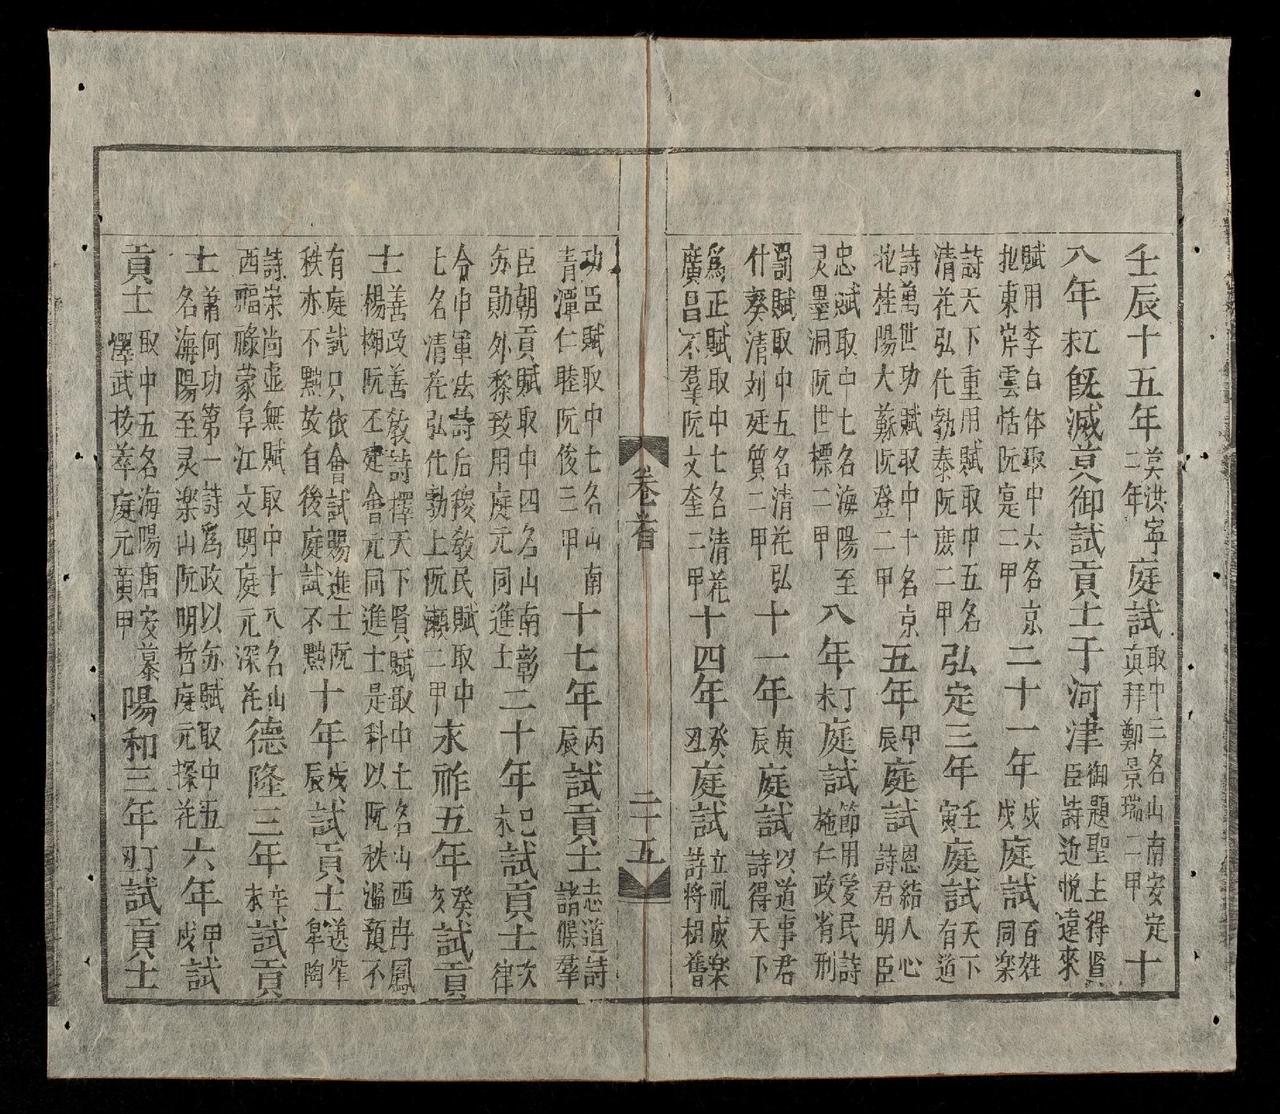 壬辰十五年莫洪寧二年庭試取中三名山南安定真拜鄭景瑞一甲十
八年乙未既滅莫御試貢士于河津御題聖主得賢臣詩近悦遠來
賦用李白体取中六名京北東岸雲恬阮寔二甲二十一年戊戌庭試百姓同楽
詩天下重用賦取中五名清花弘化勃泰阮二甲弘定三年壬寅庭試天下有道
詩萬世功賦取中十名京北桂陽大蘇阮登二甲五年甲辰庭試恩結人心詩君明臣
忠賦取中七名海陽至灵墨洞阮世標二甲八年丁未庭試節用愛民詩施仁政省刑
罰賦取中五名清花弘什葵清刘廷質二甲十一年庚辰庭試以道事君詩得天下
為正賦取中七名清花廣昌不羣阮文奎二甲十四年癸丑庭試立礼成楽詩将相舊
卷之首 二十五
功臣賦取中七名山南青潭仁睦阮俊三甲十七年丙辰試貢士志道詩諸候羣
臣朝貢賦取中四名山南彰夯勛外黎致用庭元同進士二十年己未試貢士次律
令申軍法詩后稷教民賦取中七名清花弘化勃上阮瀨二甲永祚五年癸亥試貢
士善政善教詩擇天下賢賦取中七名山西丹鳳楊柳阮丕建會元同進士是科以阮秩濫預不
有庭試只依會試賜進士阮秩亦不㸃故自後庭試不㸃十年戊辰試貢士選举皐陶
詩崇尚虚無賦取中十八名山西福祿蒙阜江文明庭元深花德隆三年辛未試貢
士蕭何功第一詩為政以夯賦取中五名海陽至灵楽山阮明哲庭元探花六年甲戌試
貢士取中五名海陽唐安慕懌武抜萃庭元黄甲陽和三年丁丑試貢士